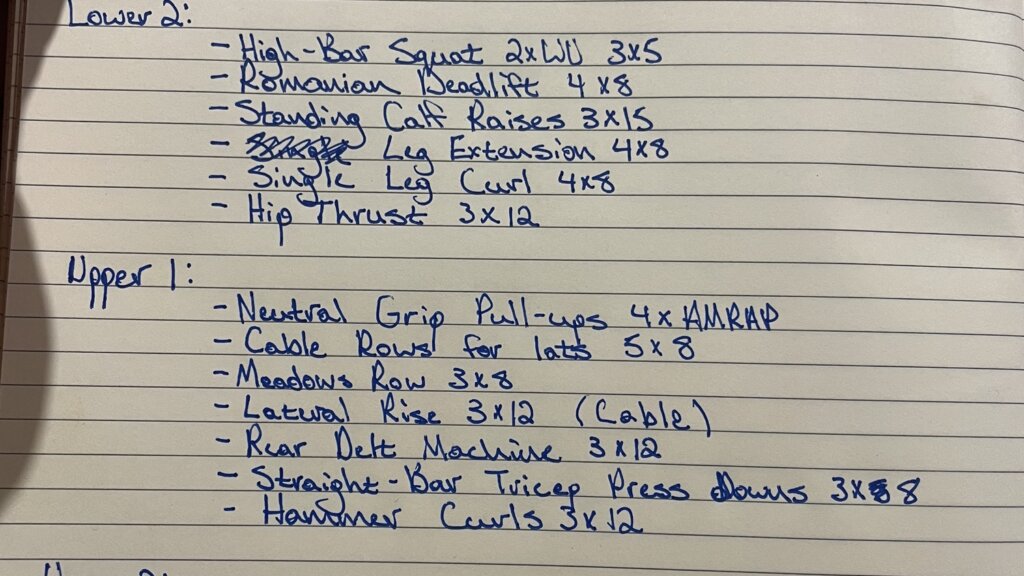 Lower 2:
- High-Bar Squat 2xWU 3x5
- Romanian Deadlift 4 x8
- Standing Calf Raises 3x15
- Leg Extension 4x8
- Single Leg Curl 4x8
- Hip Thrust 3x12
Upper 1:
- Neutral Grip Pull-ups 4x AMRAP
- Cable Rows for lats 5x8
- Meadows Row 3x8
- Latural Rise 3x12 (Cable)
- Rear Delt Machine 3x12
- Straight-Bar Tricep Press downs 3x8
- Hammer Curls 3x12